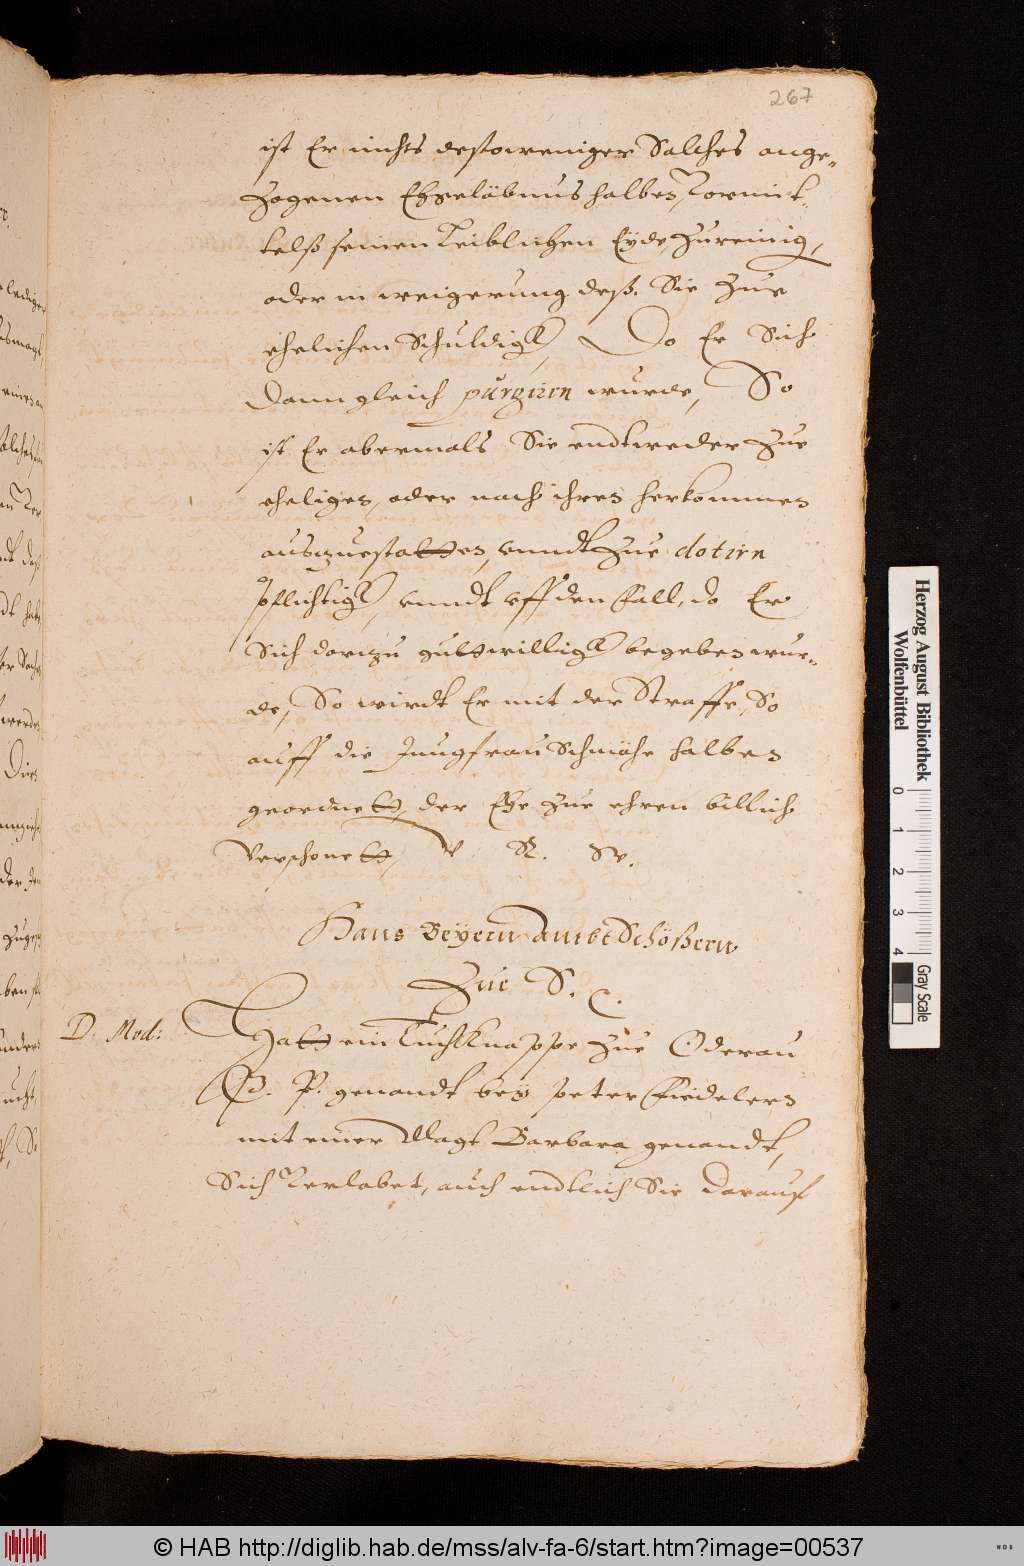 267
ist Er nichts destoweniger Solches ange-
Zogenen Ehgelübnus halben, Vormit-
telß seinen Leiblichen Eyde, Zureinig,
oder in weigerung deß. Sie Zue
ehelichen Schuldigk, Do Er Sich
Dann gleich purgiren wurde, So
ist Er abermals Sie endtweder Zue
eheligen, oder nach ihren herkommen
auszustatten, vnndt Zue dotirn
pflichtigk, vnndt vff den Fall, do Er
Sich darzu guttwilligk begeben wur-
de, So wirdt Er mit der Straffe, So
auff die Jungfrau Schwäche halben
geordnett, der Ehe Zue ehren billich
Verschonett, V. R. W.
Hans Beyern Ambt Schößern
Zue S. C.
D. Mod:
Hatt ein Tuchknappe Zue Oderan
P. genandt bey Peter Fiedelern
mit einer Magt Barbara genandt,
Sich Verlobet, auch endtlich Sie darauf
Herzog August Bibliothek
Wolfenbüttel
0 1 2 3 4
Gray Scale
© HAB http://diglib.hab.de/mss/alv-fa-6/start.htm?image=00537
WDB